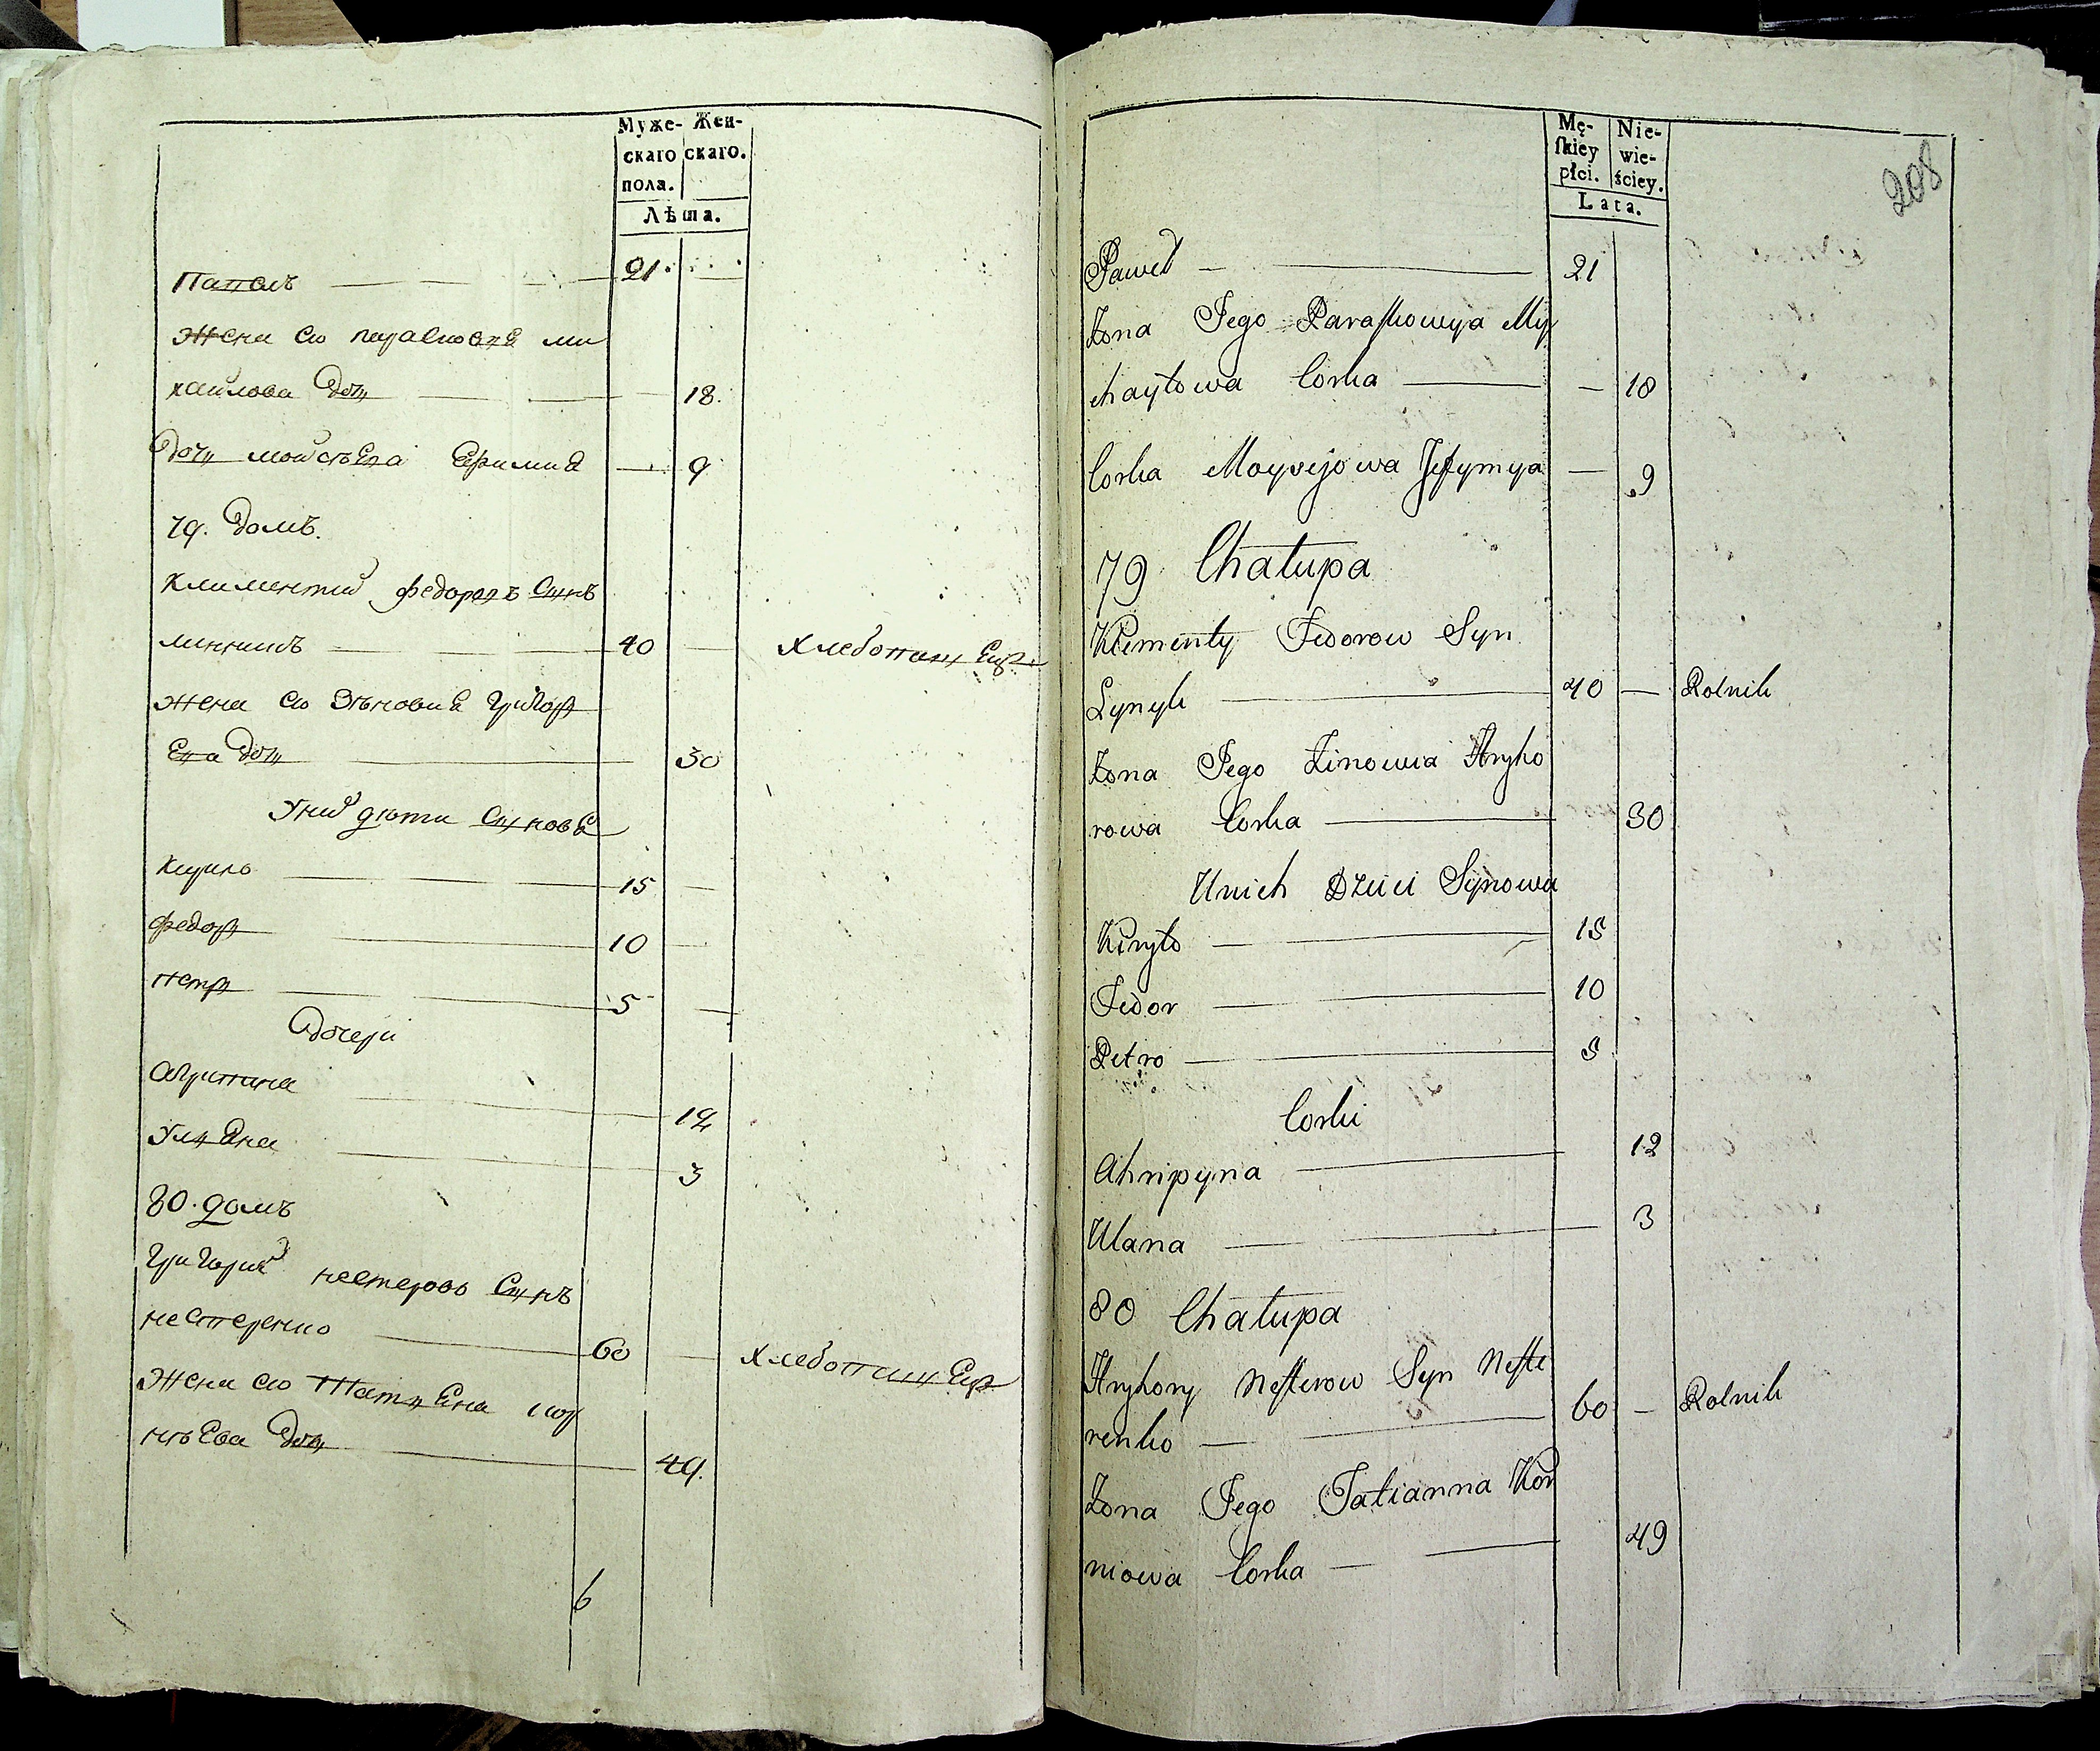 Муже- Жен-
скаго скаго.
пола.
Лѣта.
Павелъ 21
Жена его парасковія ми
хайлова дочь 18.
Дочь мойсѣева Ефимия 9
79. домъ.
Климентий федоровъ Сынъ
линникъ 40 хлебопашецъ
жена его Зѣновия Григор
Ева дочь 30
Уних дѣти Сыновя
Кирило 15
федор 10
петр 5
дочери
Агрипина 12
Улияна 3
80. домъ
Григорий нестеровъ Сынъ
нестеренко 60 хлебопашецъ
Жена его Татияна кор
нѣева дочь 49.
6
208
Mę- Nie-
skiey wie-
płci. ściey.
Lata.
Paweł 21
Żona Jego Paraskowya My
chayłowa Corka 18
Corka Moysejowa Jefymya 9
79 Chałupa
Klementy Fedorow Syn
Lynyk 40 Rolnik
Żona Jego Zinowia Hryho
rowa Corka 30
Unich Dzieci Synowa
Kiryło 15
Fedor 10
Petro 5
Corki
Ahripyna 12
Ulana 3
80 Chałupa
Hryhory Nesterow Syn Neste
renko 60 Rolnik
Żona Jego Tatianna Kor
niowa Corka 49